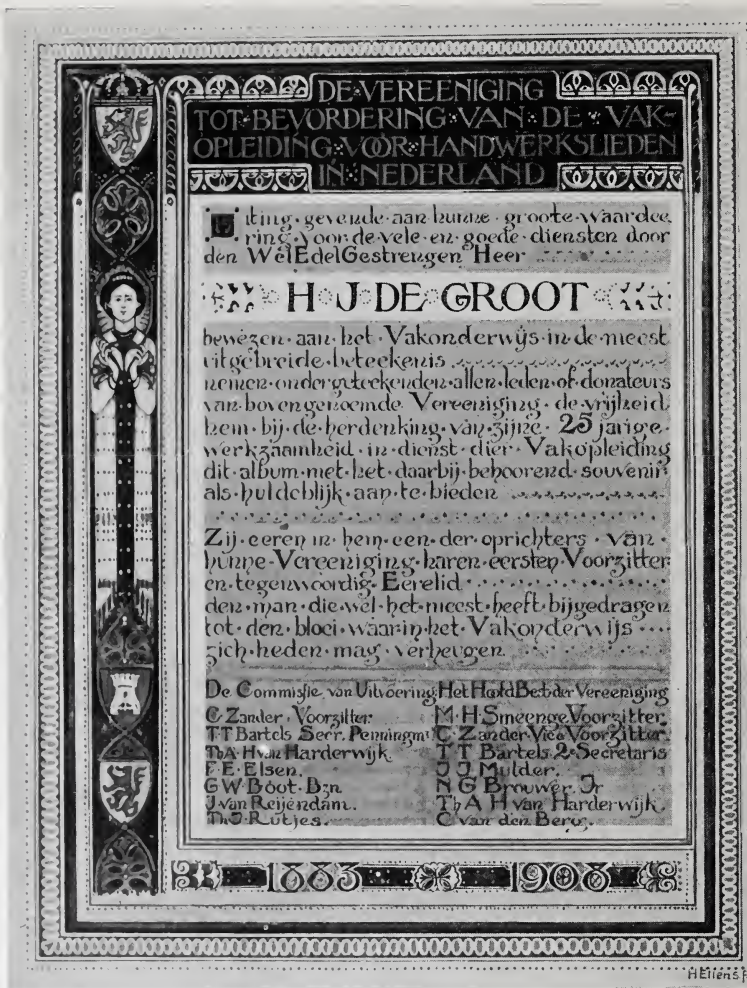 DE VEREENIGING
TOT BEVORDERING VAN DE VAK-
OPLEIDING VOOR HANDWERKSLIEDEN
IN NEDERLAND
Uiting gevende aan hunne groote waardee
ring voor de vele en goede diensten door
den WelEdelGestrengen Heer
H J DE GROOT
bewezen aan het Vakonderwijs in de meest
uitgebreide beteekenis
nemen ondergeteekenden allen leden of donateurs
van bovengenoemde Vereeniging de vrijheid
hem bij de herdenking van zijne 25 jarige
werkzaamheid in dienst dier Vakopleiding
dit album met het daarbij behoorend souvenir
als huldeblijk aan te bieden
Zij eeren in hem een der oprichters van
hunne Vereeniging haren eersten Voorzitter
en tegenwoordig Eerelid
den man die wel het meest heeft bijgedragen
tot den bloei waarin het Vakonderwijs
zich heden mag verheugen
De Commissie van Uitvoering
C Zander Voorzitter
T T Bartels Secr. Penningmr
Th A H van Harderwijk
F E Elsen.
G W Boot Dzn
J van Reijendam.
Th J Rutjes.
Het Hoofd Best der Vereeniging
M H Smeenge Voorzitter
C Zander Vice Voorzitter
T T Bartels 2e Secretaris
J J Mulder.
N G Brouwer Jr
Th A H van Harderwijk.
C van den Berg.
1883 1908